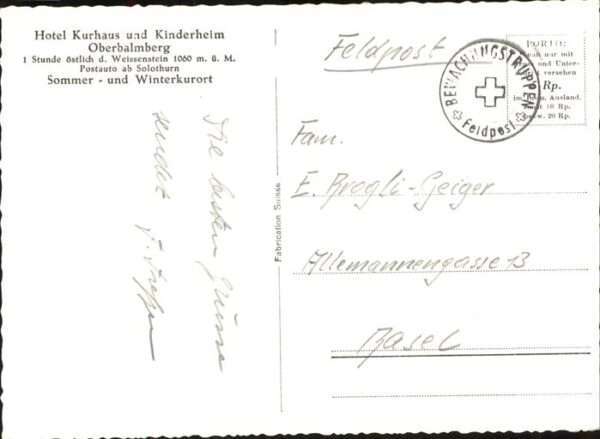 Hotel Kurhaus und Kinderheim
Oberbalmberg
1 Stunde östlich d. Weissenstein 1060 m. ü. M.
Postauto ab Solothurn
Sommer - und Winterkurort
Die besten Grüsse
sendet
Fabrication Suisse
Feldpost
BEWACHUNGSTRUPPEN
Feldpost
PORTO:
nur mit
und Unter-
versehen
Rp.
Ausland.
10 Rp.
20 Rp.
Fam.
E. Brogli-Geiger
Allemannengasse 13
Basel